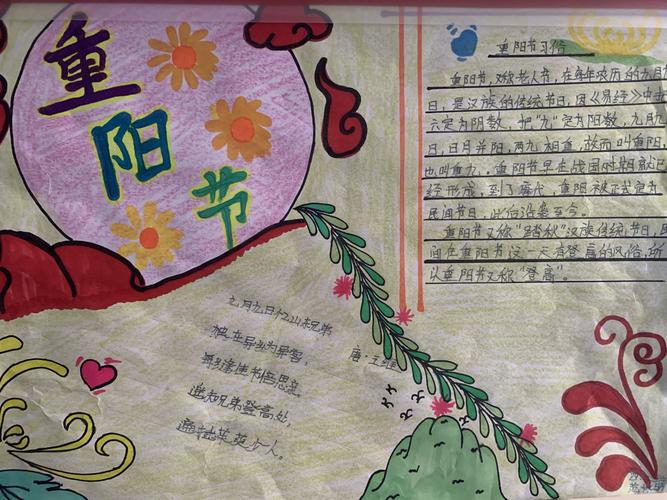 重阳节
重阳节习俗
重阳节，又称老人节，在每年农历的九月
日，是汉族的传统节日，因《易经》中
六定为阴数，把"九"定为阳数，九月九
日，日月并阳，两九相重，故而叫重阳，
也叫重九。重阳节早在战国时期就已
经形成，到了唐代，重阳被正式定为
民间节日，此后沿袭至今。
重阳节又称"踏秋"汉族传统节日，民
间在重阳节这一天有登高的风俗，所
以重阳节又称"登高"。
九月九日忆山东兄弟
唐·王维
独在异乡为异客，
每逢佳节倍思亲。
遥知兄弟登高处，
遍插茱萸少一人。